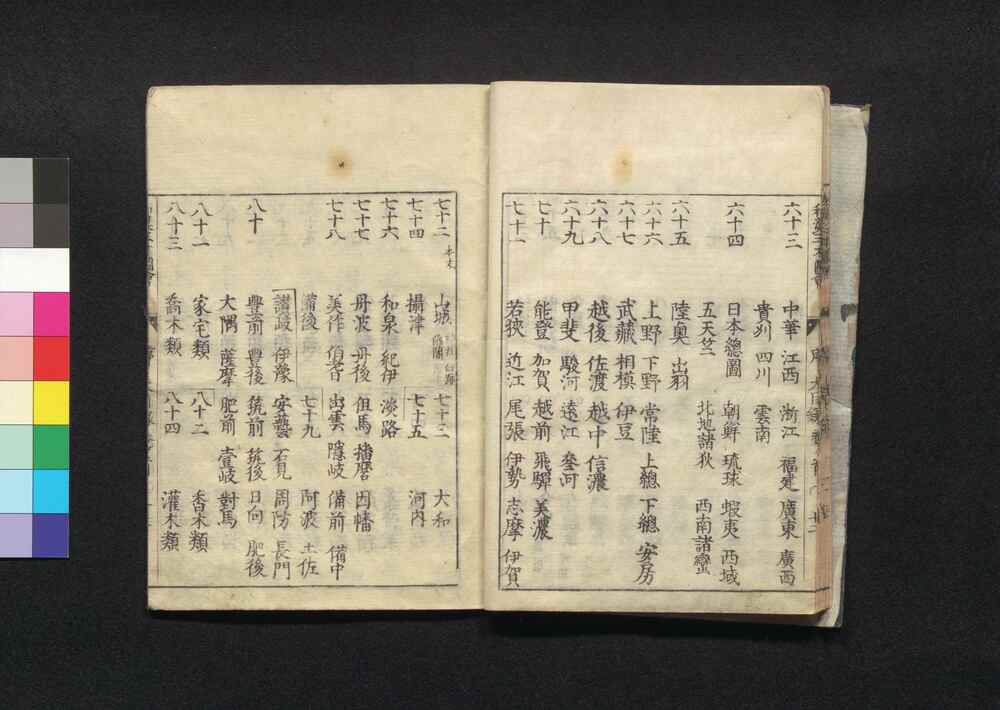 六十三 中華 江西 浙江 福建 廣東 廣西
貴州 四川 雲南
六十四 日本總圖 朝鮮 琉球 蝦夷 西域
五天竺 北地諸狄 西南諸蠻
六十五 陸奧 出羽
六十六 上野 下野 常陸 上總 下總 安房
六十七 武藏 相模 伊豆
六十八 越後 佐渡 越中 信濃
六十九 甲斐 駿河 遠江 參河
七十 能登 加賀 越前 飛驒 美濃
七十一 若狹 近江 尾張 伊勢 志摩 伊賀
七十二 本末 山城 七十三 大和
七十四 攝津 七十五 河内
七十六 和泉 紀伊 淡路
七十七 丹波 丹後 但馬 播磨 因幡
七十八 美作 伯耆 出雲 隱岐 備前 備中
備後 七十九 阿波 土佐
讃岐 伊豫 安藝 石見 周防 長門
八十 豐前 豐後 筑前 筑後 日向 肥後
大隅 薩摩 肥前 壹岐 對馬
八十一 家宅類 八十二 香木類
八十三 喬木類 八十四 灌木類